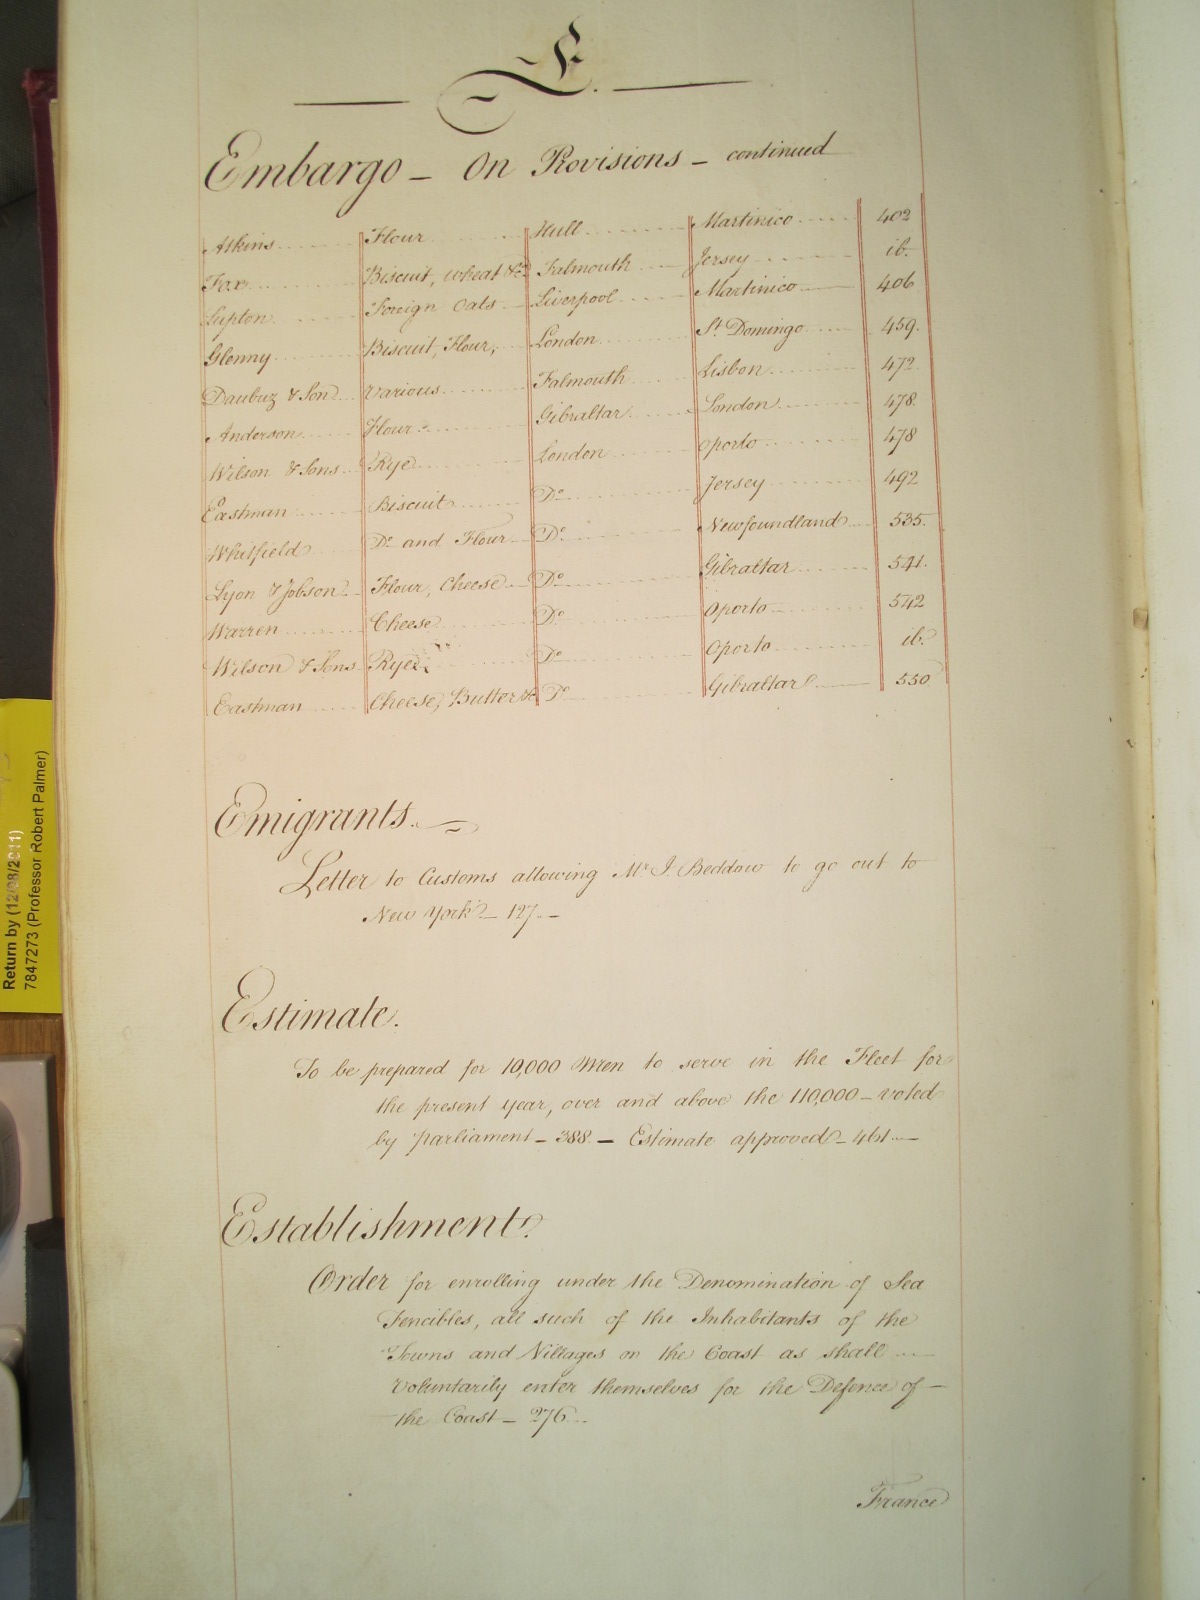 E.
Embargo – On Provisions – continued
Atkins Flour Hull Martinico 402
Fox Biscuit, Wheat &c Falmouth Jersey ib.
Lupton Foreign Oats Liverpool Martinico 406
Glenny Biscuit, Flour, London St. Domingo 459.
Daubuz & Son Various Falmouth Lisbon 472
Anderson Flour Gibraltar London 478
Wilson & Sons Rye London Oporto 478
Eastman Biscuit Do Jersey 492
Whitfield Do and Flour Do Newfoundland 535.
Lyon & Jobson Flour, Cheese Do Gibraltar 541.
Warren Cheese Do Oporto 542
Wilson & Sons Rye Do Oporto ib.
Eastman Cheese, Butter &c Do Gibraltar 550
Emigrants.
Letter to Customs allowing Mr J. Beddow to go out to
New York – 127. –
Estimate.
To be prepared for 10,000 Men to serve in the Fleet for
the present year, over and above the 110,000 – voted
by Parliament – 388. – Estimate approved – 461. –
Establishment.
Order for enrolling under the Denomination of Sea
Fencibles, all such of the Inhabitants of the
Towns and Villages on the Coast as shall
Voluntarily enter themselves for the Defence of –
the Coast – 276..
France
Return by (12/08/2011)
7847273 (Professor Robert Palmer)